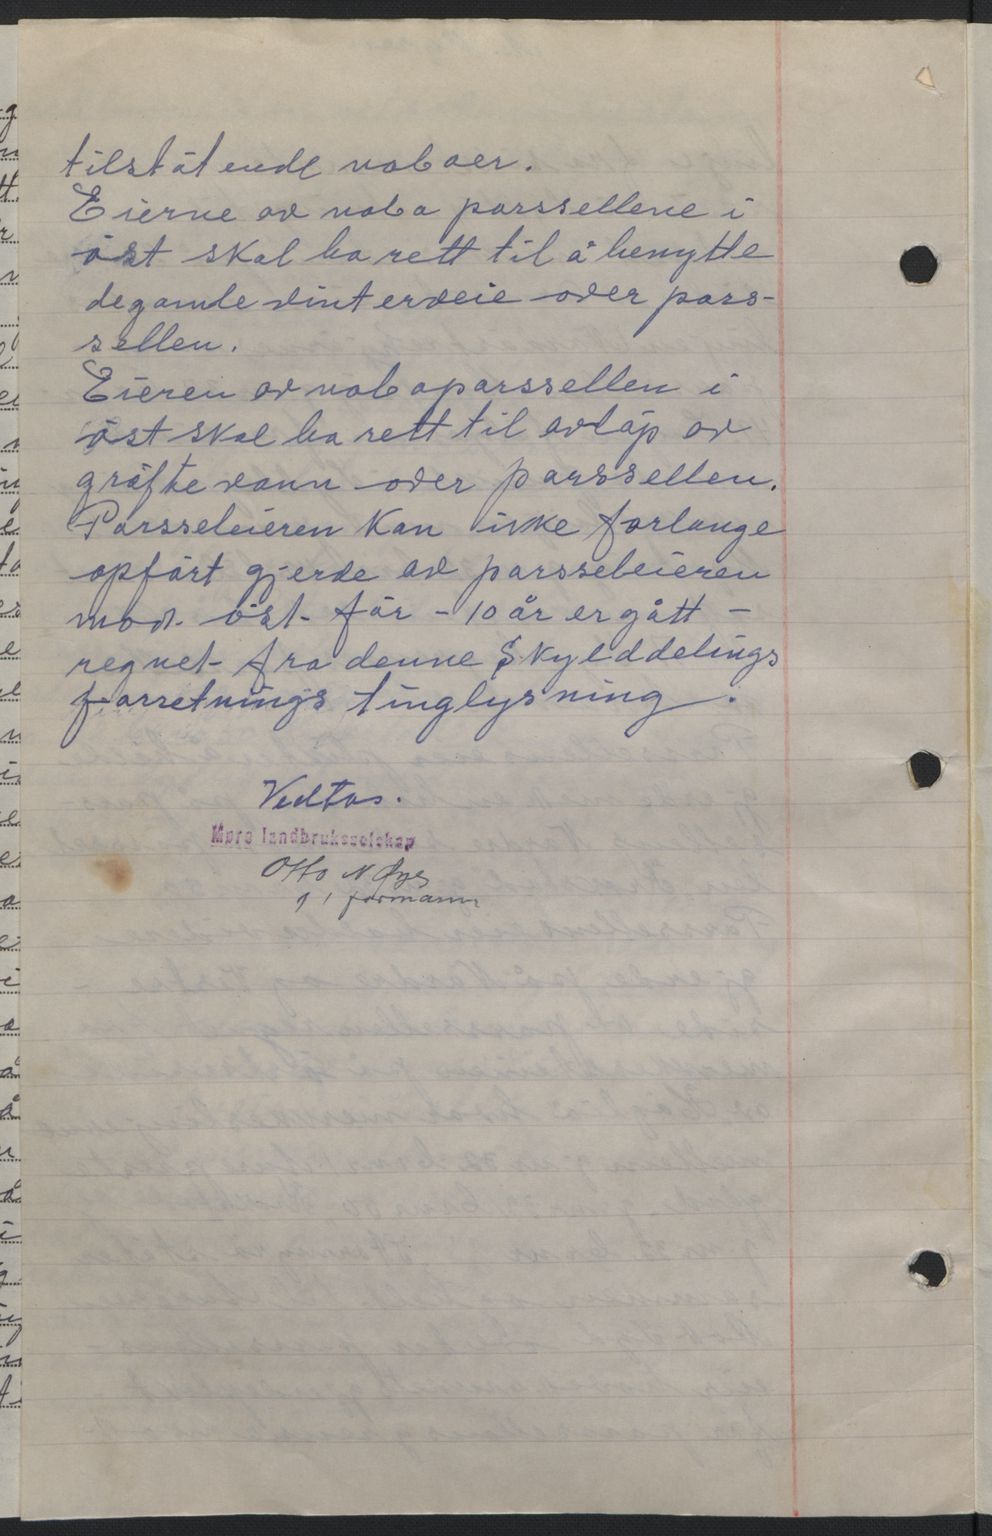 tilståtende naboer.
Eierne av nabo parssellene i
öst skal ha rett til å benytte
de gamle vinterveie over pars-
sellen.
Eieren av naboparssellen i
öst skal ha rett til avlöp av
gröfte vann over parssellen.
Parsseleieren kan ikke forlange
opfört gjerde av parsseleieren
mot öst för - 10 år er gått -
regnet fra denne Skylddelings
forretnings tinglysning.
Vedtas.
Møre landbruksselskap
Otto N Øye
formann